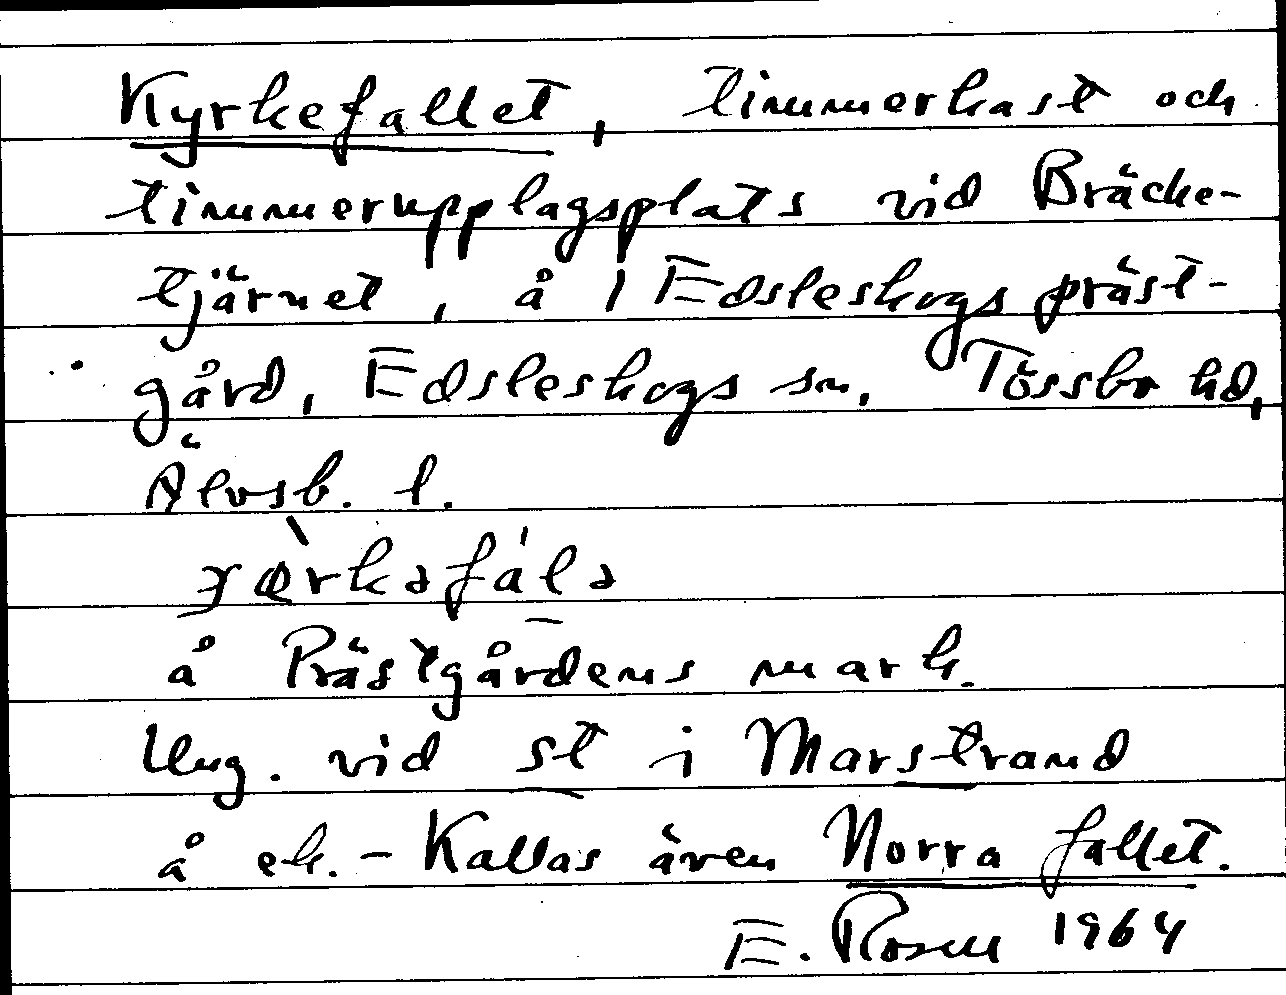 Kyrkefallet, timmerkast och
timmerupplagsplats vid Bräcke-
tjärnet, å 1 Edsleskogs präst-
gård, Edsleskogs sn, Tössbo hd,
Älvsb. l.
å Prästgårdens mark.
Ung. vid st i Marstrand
å ek. – Kallas även Norra fallet.
E. Rosen 1964